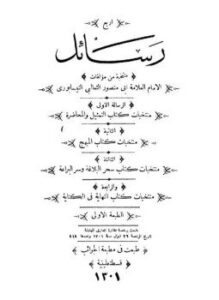 اربع
رسائل
منتخبة من مؤلفات
الامام العلامة ابى منصور الثعالبى النيسابورى
الرسالة الاولى
منتخبات كتاب التمثيل والمحاضرة
الثانية
منتخبات كتاب المبهج
الثالثة
منتخبات كتاب سحر البلاغة وسر البراعة
والرابعة
منتخبات كتاب النهاية فى الكناية
الطبعة الاولى
طبعت فى مطبعة الجوائب
قسطنطينية
١٣٠١